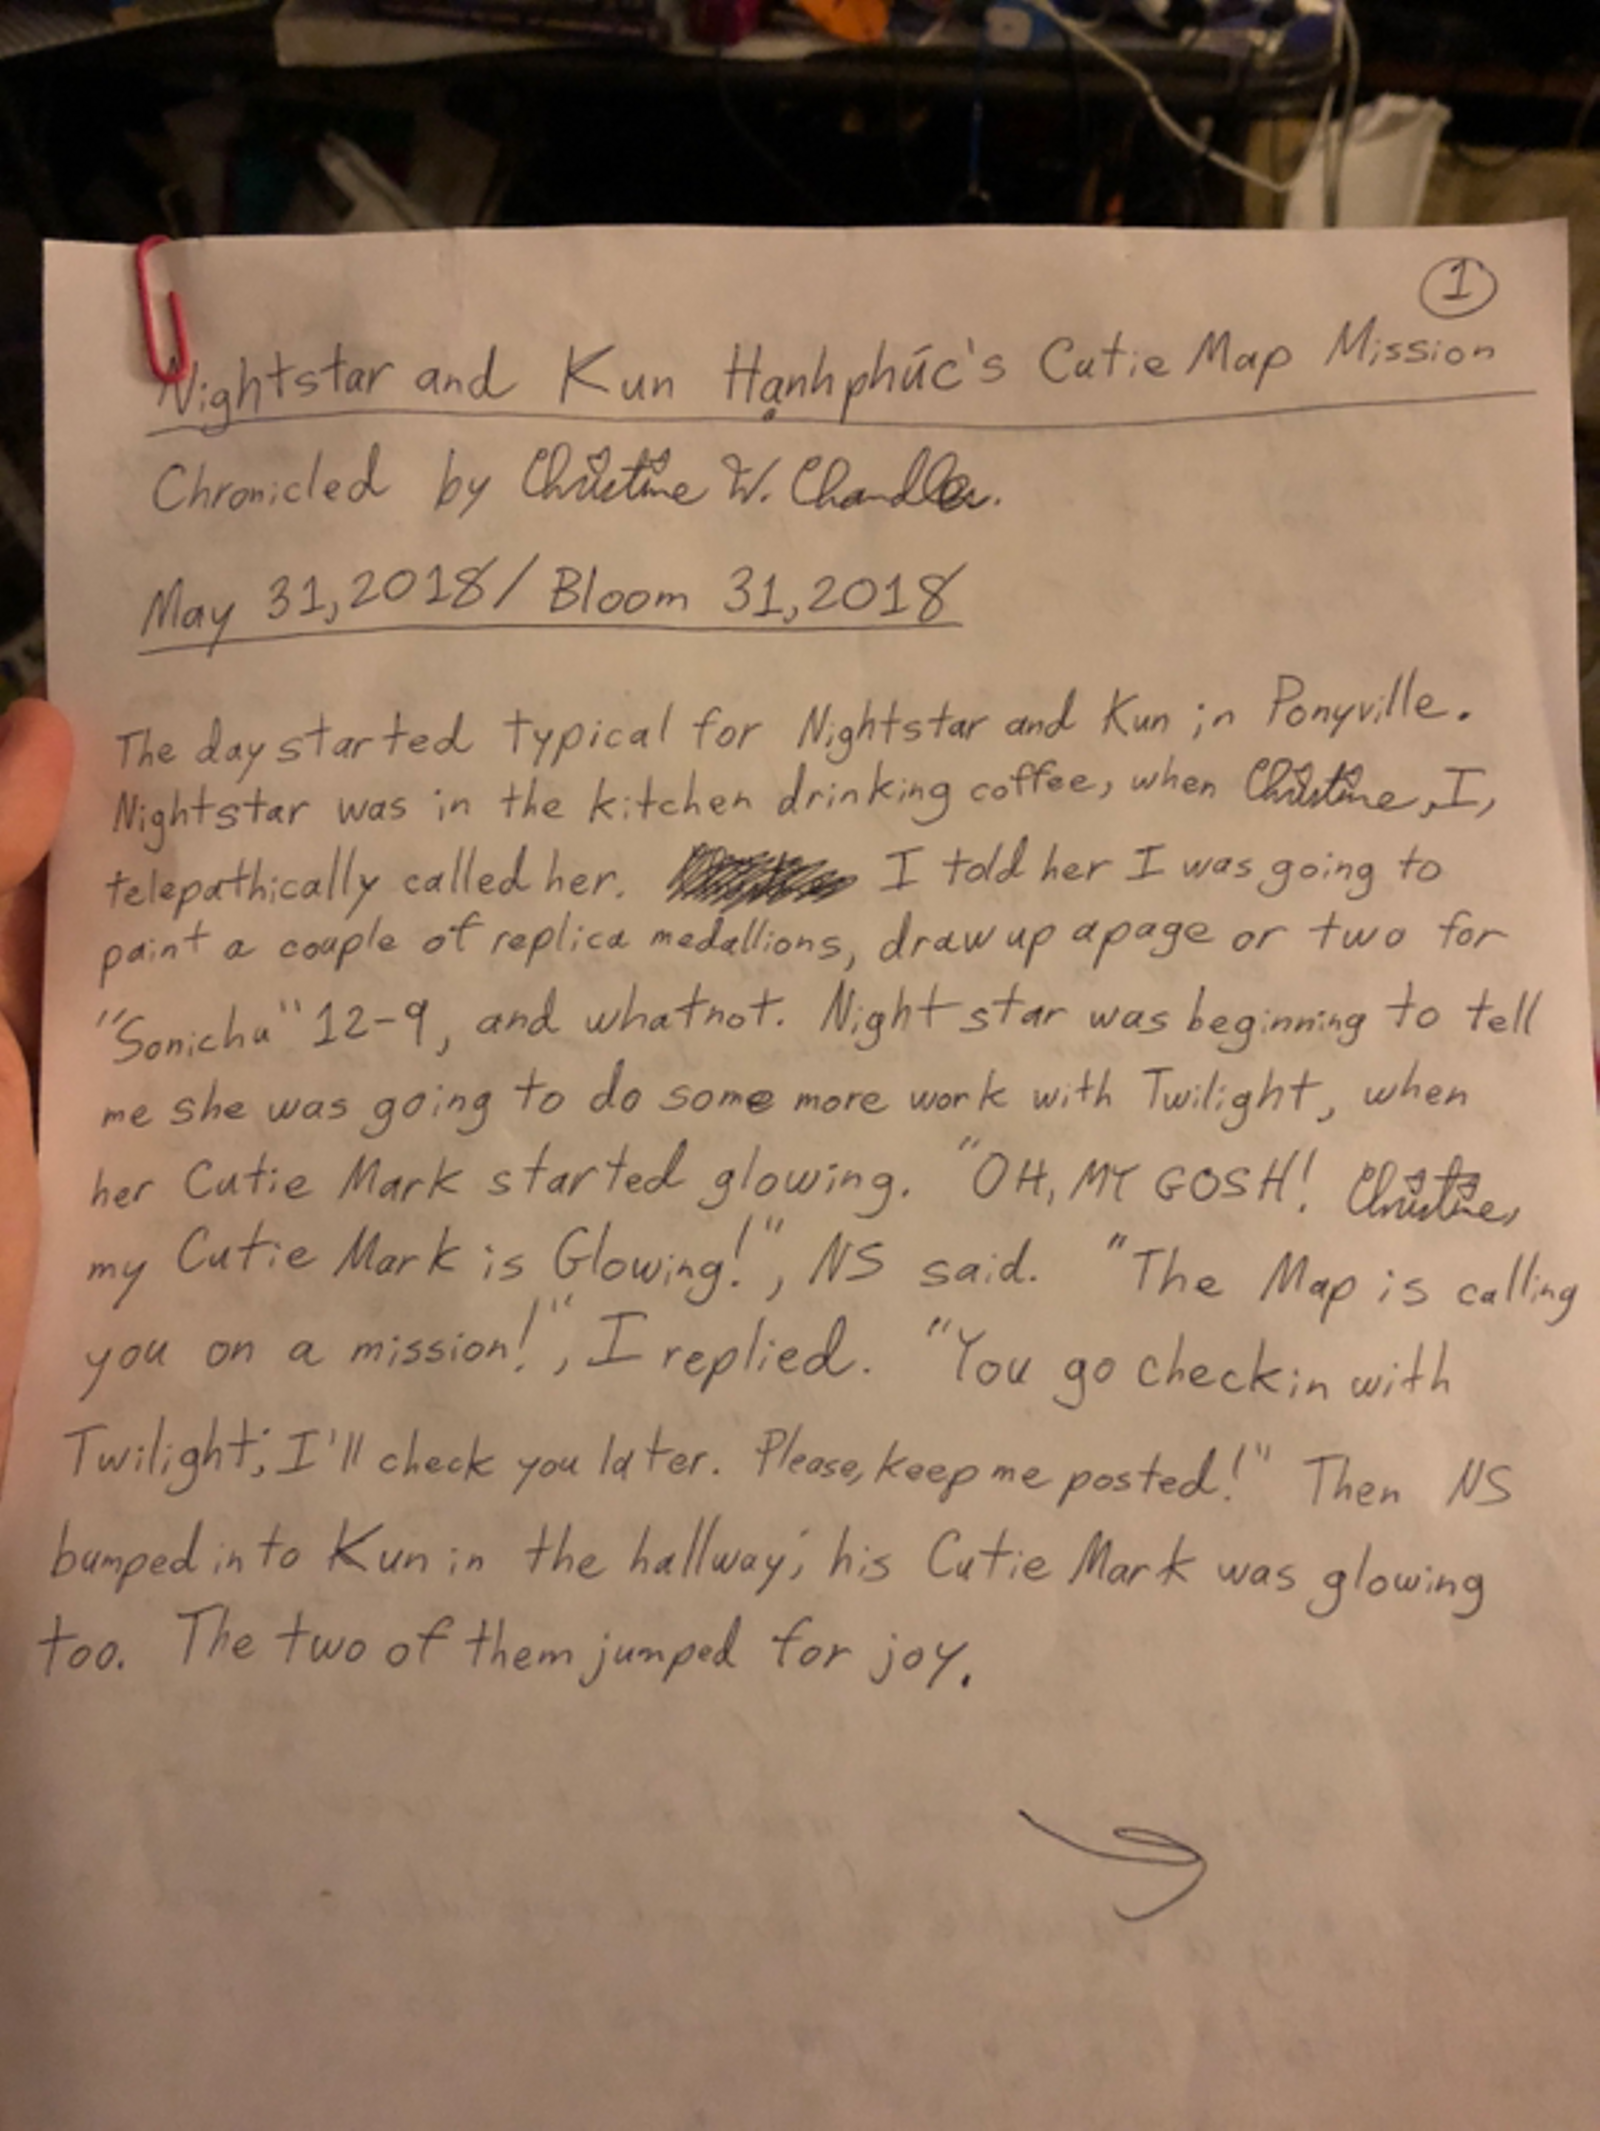 1
Nightstar and Kun Hạnhphúc's Cutie Map Mission
Chronicled by Christine W. Chandler.
May 31, 2018 / Bloom 31, 2018
The day started typical for Nightstar and Kun in Ponyville.
Nightstar was in the kitchen drinking coffee, when Christine, I,
telepathically called her. I told her I was going to
paint a couple of replica medallions, draw up a page or two for
"Sonichu" 12-9, and whatnot. Nightstar was beginning to tell
me she was going to do some more work with Twilight, when
her Cutie Mark started glowing. "OH, MY GOSH! Christine,
my Cutie Mark is Glowing!", NS said. "The Map is calling
you on a mission!", I replied. "You go check in with
Twilight; I'll check you later. Please, keep me posted!" Then NS
bumped into Kun in the hallway; his Cutie Mark was glowing
too. The two of them jumped for joy.